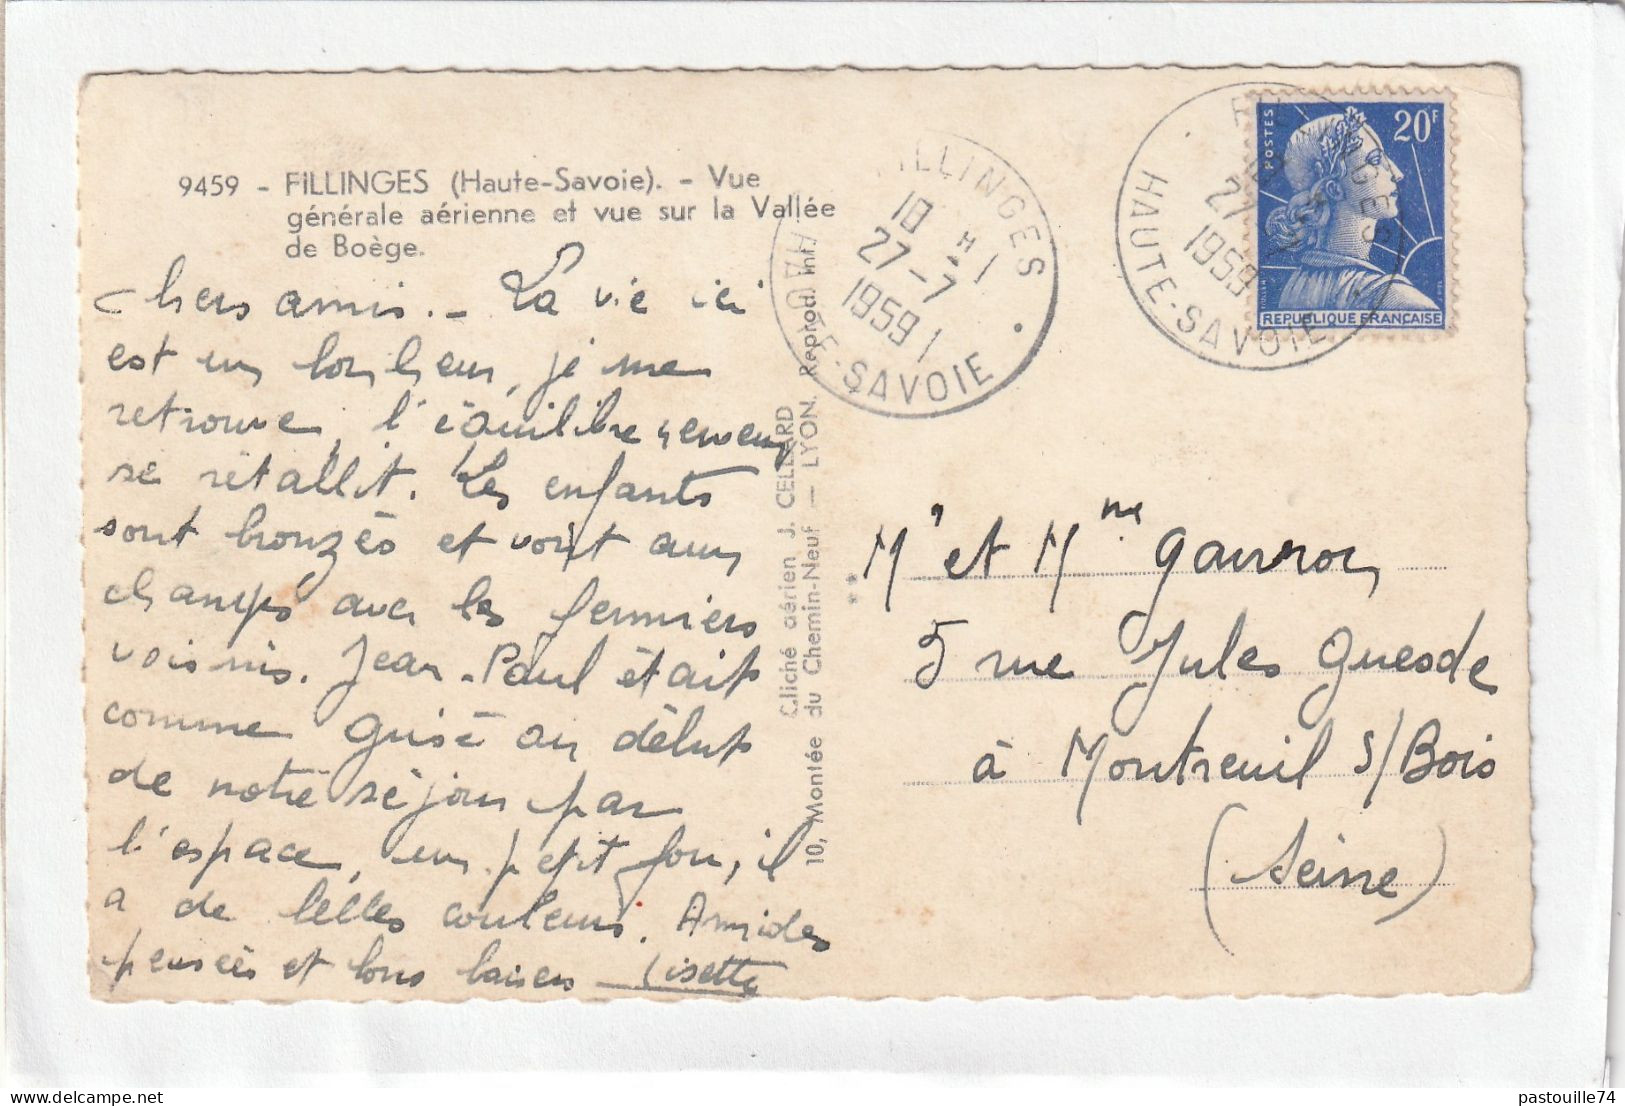 9459 - FILLINGES (Haute-Savoie). - Vue
générale aérienne et vue sur la Vallée
de Boège.
Chers amis. - La vie ici
est un bonheur, je me
retrouve, l'équilibre nerveux
se rétablit. Les enfants
sont bronzés et vont aux
champs avec les fermiers
voisins. Jean-Paul était
comme grisé au début
de notre séjour par
l'espace, un petit fou, il
a de belles couleurs. Amicales
pensées et bons baisers Lisette
Cliché aérien J. CELLARD
10, Montée du Chemin-Neuf — LYON. Reprod. int.
FILLINGES
18 H
27-7
1959
HAUTE-SAVOIE
FILLINGES
27
1959
HAUTE-SAVOIE
POSTES
20F
REPUBLIQUE FRANÇAISE
Mr et Mme Gauron
5 rue Jules Guesde
à Montreuil s/Bois
(Seine)
pastouille74